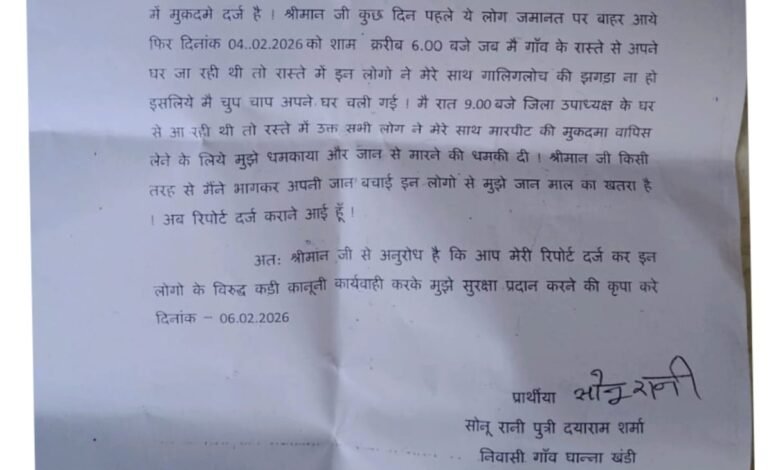 में मुकदमे दर्ज है ! श्रीमान जी कुछ दिन पहले ये लोग जमानत पर बाहर आये
फिर दिनांक 04..02.2026 को शाम क्ररीब 6.00 बजे जब मै गाँव के रास्ते से अपने
घर जा रही थी तो रास्ते में इन लोगो ने मेरे साथ गालिगलोच की झगडा ना हो
इसलिये मै चुप चाप अपने घर चली गई ! मै रात 9.00 बजे जिला उपाध्यक्ष के घर
से आ रही थी तो रस्ते में उक्त सभी लोग ने मेरे साथ मारपीट की मुकदमा वापिस
लेने के लिये मुझे धमकाया और जान से मारने की धमकी दी ! श्रीमान जी किसी
तरह से मैंने भागकर अपनी जान बचाई इन लोगो से मुझे जान माल का खतरा है
! अब रिपोर्ट दर्ज कराने आई हूँ !
अतः श्रीमान जी से अनुरोध है कि आप मेरी रिपोर्ट दर्ज कर इन
लोगो के विरुद्ध कडी कानूनी कार्यवाही करके मुझे सुरक्षा प्रदान करने की कृपा करे
दिनांक – 06.02.2026
प्रार्थीया सोनू रानी
सोनू रानी पुत्री दयाराम शर्मा
निवासी गाँव घान्ना खंडी